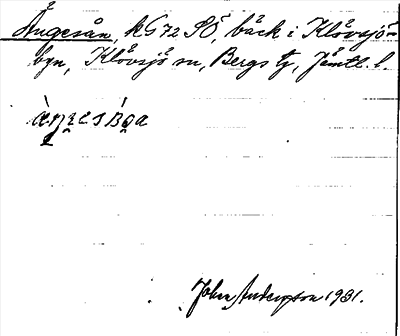 Ängesån, kG 72 SÖ, bäck i Klövsjö-
byn, Klövsjö sn, Bergs tg, Jämtl. l.
John Andersson 1931.